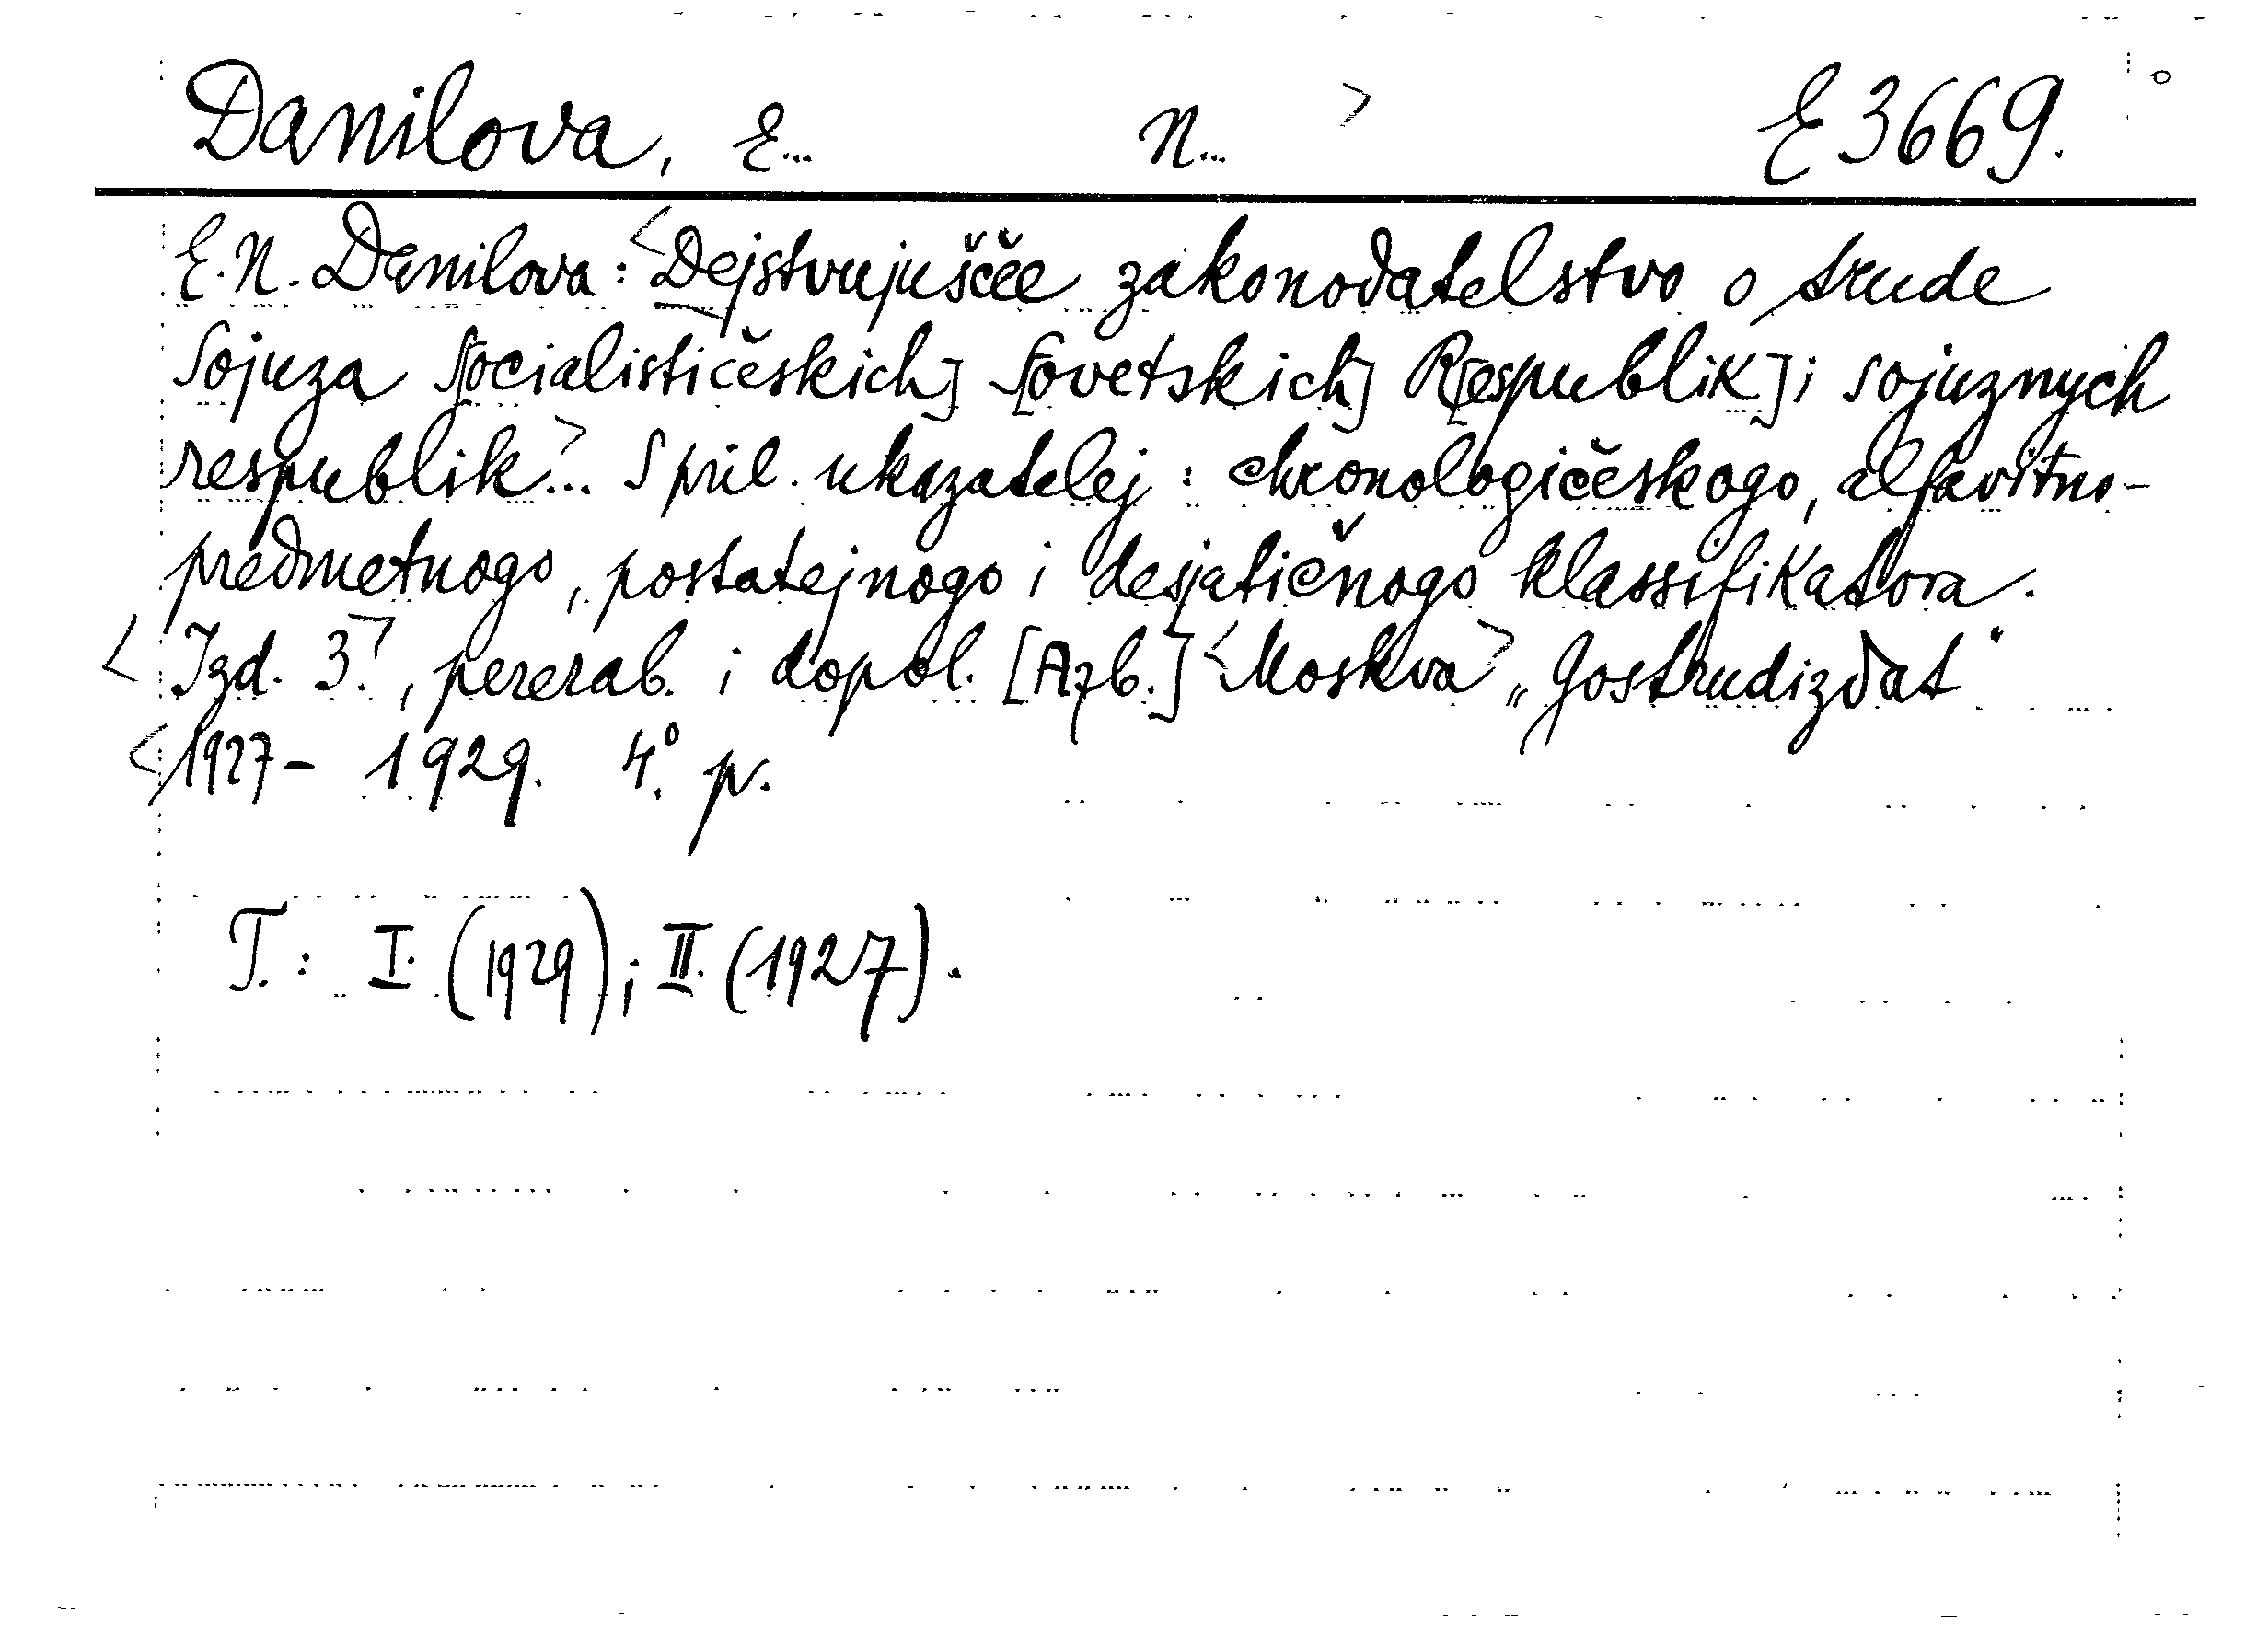 Danilova, E... N... > E 3669.
E. N. Danilova: <Dejstvujuščee zakonodatelstvo o trude
Sojuza S[ocialističeskich] S[ovetskich] R[espublik] i sojuznych
respublik>... S pril. ukazatelej: chronologičeskogo, alfavitno-
predmetnogo, postatejnogo i desjatičnogo klassifikatora.
<Izd. 3.>, pererab. i dopol. [Azb.] <Moskva> „Gostrudizdat"
<1927- 1929. 4.° p.
T.: I. (1929); II. (1927).